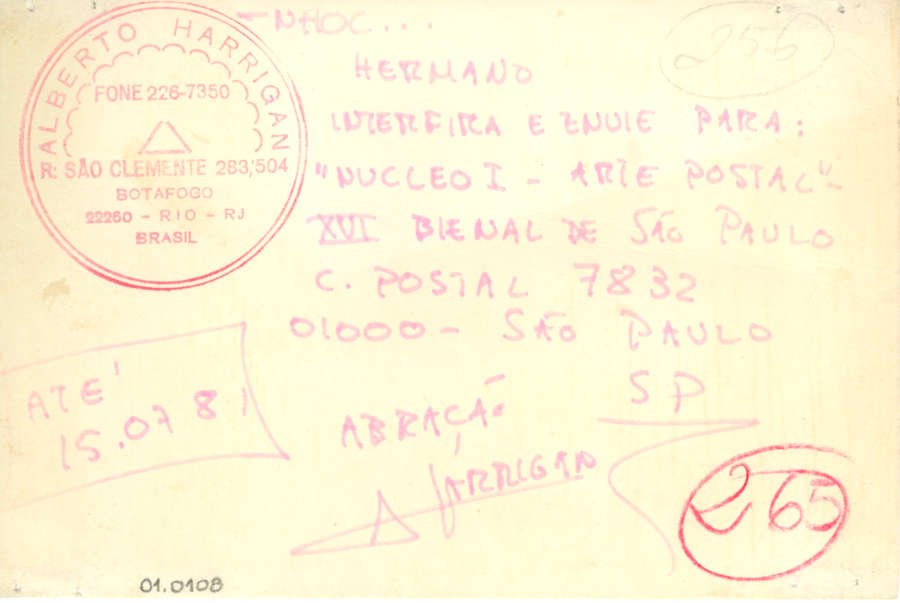 ALBERTO HARRIGAN
FONE 226-7350
R: SÃO CLEMENTE 283/504
BOTAFOGO
22260 - RIO - RJ
BRASIL
- NHOC...
256
HERMANO
INTERFIRA E ENVIE PARA:
"NUCLEO I - ARTE POSTAL" -
XVI BIENAL DE SÃO PAULO
C. POSTAL 7832
01000 - SÃO PAULO
SP
ATÉ
15.07 81
ABRAÇÃO
HARRIGAN
265
01.0108